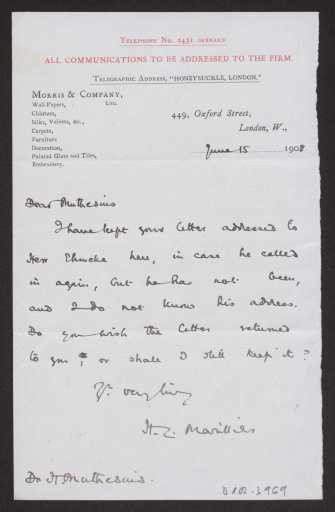 TELEPHONE No. 2431 GERRARD
ALL COMMUNICATIONS TO BE ADDRESSED TO THE FIRM.
TELEGRAPHIC ADDRESS, "HONEYSUCKLE, LONDON."
MORRIS & COMPANY,
LTD.
Wall-Papers,
Chintzes,
Silks, Velvets, &c.,
Carpets,
Furniture
Decoration,
Painted Glass and Tiles,
Embroidery.
449, Oxford Street,
London, W.,
June 15 1908
Dear Muthesius
I have kept your letter addressed to
Herr here, in case he called
in again, but he has not been,
and I do not know his address.
Do you wish the letter returned
to you, or shall I still keep it?
Yrs very truly
H. C. Marillier
Dr H Muthesius.
D 102-3969